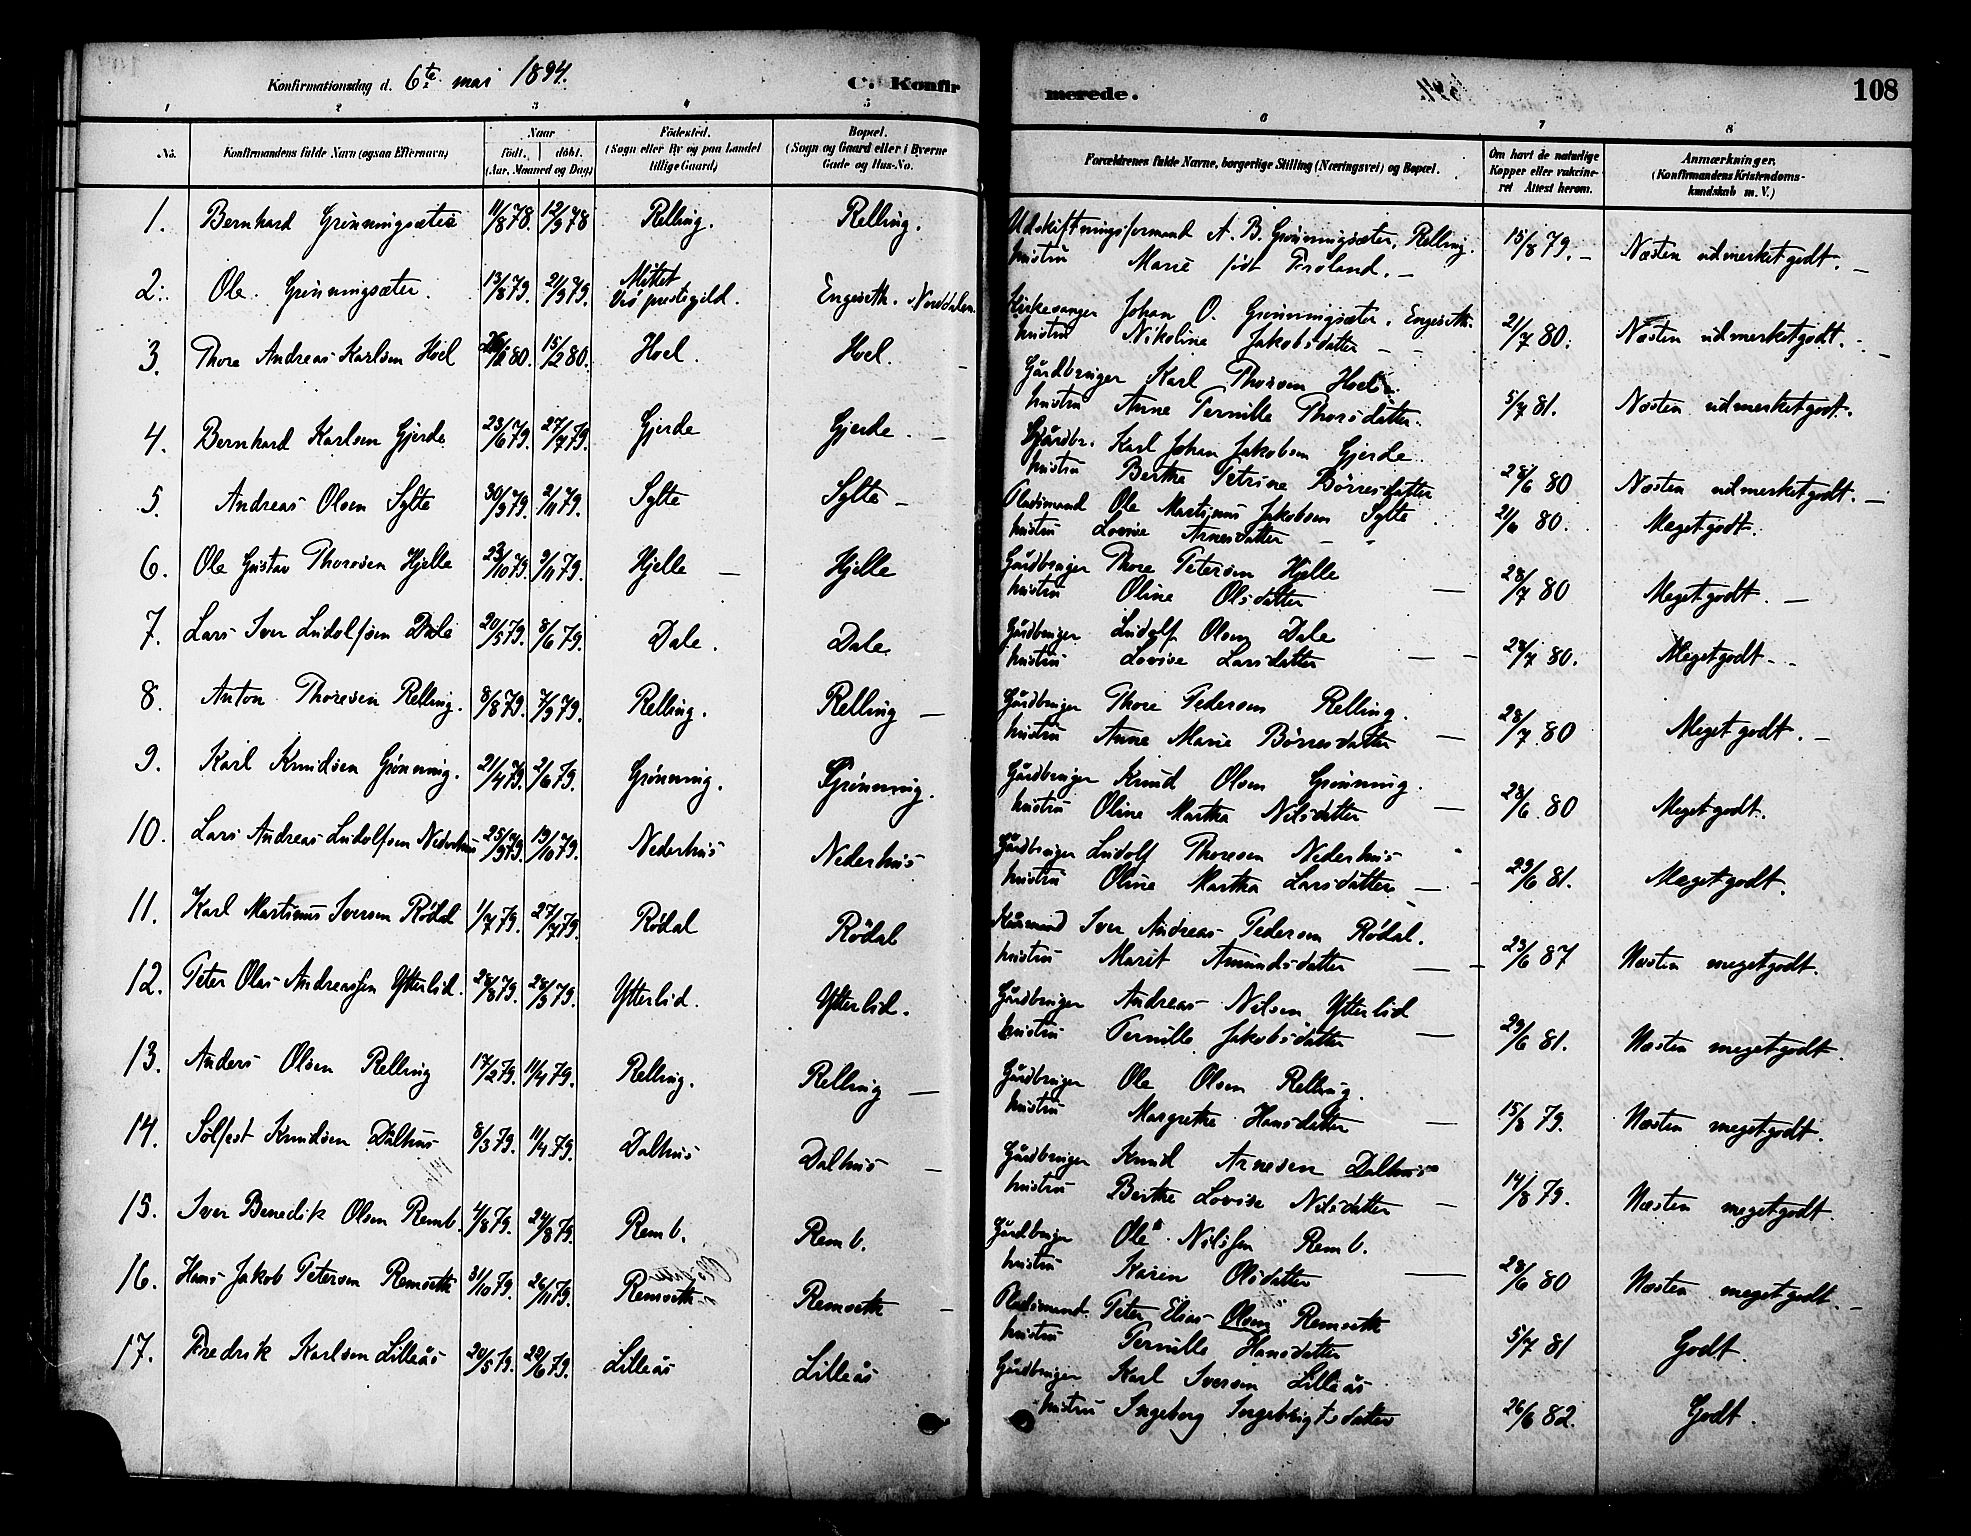 Konfirmationsdag d. 6te mai 1894. C. Konfirmerede. 108
1 2 3 4 5 6 7 8
No. Konfirmandens fulde Navn (ogsaa Efternavn) Naar født. døbt. (Aar, Maaned og Dag) Fødested. (Sogn eller By og paa Landet tillige Gaard) Bopæl. (Sogn og Gaard eller i Byerne Gade og Hus-No. Forældrenes fulde Navne, borgerlige Stilling (Næringsvei) og Bopæl. Om havt de naturlige Kopper eller vakcineret Attest herom. Anmærkninger. (Konfirmandens Kristendomskundskab m. V.)
1. Bernhard Grønningsæter 11/8 78. 12/9 78 Relling. Relling. Udskiftningsformand A. B. Grønningsæter, Relling.
hustru Marie født Frøland. — 15/8 79. — Næsten udmerket godt. —
2. Ole Grønningsæter. 13/8 79. 21/9 79. Mittet Vø prestegjeld. Engeseth. Norddalen Kirkesanger Johan O. Grønningsæter, Engeseth.
hustru Nikoline Jakobsdatter — 21/7 80. Næsten udmerket godt. —
3. Thore Andreas Karlsen Hoel 26/1 80. 15/2 80. Hoel. Hoel. Gårdbruger Karl Thoresen Hoel
hustru Anne Pernille Thorsdatter. 5/7 81. Næsten udmerket godt.
4. Bernhard Karlsen Gjerde 23/6 79. 27/7 79. Gjerde Gjerde. — Gårdbr. Karl Johan Jakobsen Gjerde
hustru Berthe Petrine Børresdatter 28/6 80 Næsten udmerket godt. —
5. Andreas Olsen Sylte 30/9 79. 2/11 79. Sylte Sylte — Pladsmand Ole Martinus Jakobsen Sylte
hustru Lovise Arnesdatter — 21/6 80. Meget godt.
6. Ole Gustav Thoresen Hjelle 23/10 79. 9/11 79. Hjelle — Hjelle Gårdbruger Thore Petersen Hjelle
hustru Oline Olsdatter — 28/7 80 Meget godt. —
7. Lars Iver Ludolfsen Dale 20/5 79. 8/6 79. Dale. Dale Gårdbruger Ludolf Olsen Dale
hustru Lovise Larsdatter — — 28/7 80. Meget godt. -
8. Anton Thoresen Relling. 8/8 79. 7/9 79. Relling. Relling — Gårdbruger Thore Pedersen Relling.
hustru Anne Marie Børresdatter — 28/7 80 Meget godt. —
9. Karl Knudsen Grønning. 21/4 79. 2/6 79. Grønning. Grønning. Gårdbruger Knud Olsen Grønning.
hustru Oline Martha Nilsdatter — 28/6 80 Meget godt.
10. Lars Andreas Ludolfsen Nederhus 25/9 79. 19/10 79. Nederhus Nederhus Gårdbruger Ludolf Thoresen Nederhus
hustru Oline Martha Larsdatter — - 29/6 81. Meget godt.
11. Karl Martinus Iversen Rødal 1/7 79. 27/7 79. Rødal Rødal Husmand Iver Andreas Pedersen Rødal.
hustru Marit Amundsdatter — — 23/6 87 Næsten meget godt.
12. Peter Olas Andreassen Ytterlid. 28/8 79. 28/9 79. Ytterlid. Ytterlid. Gårdbruger Andreas Nilsen Ytterlid
hustru Pernille Jakobsdatter — 29/6 81. Næsten meget godt.
13. Anders Olsen Relling 17/2 79. 11/4 79. Relling. Relling — Gårdbruger Ole Olsen Relling.
hustru Margrethe Hansdatter — 15/8 79. Næsten meget godt.
14. Sølfest Knudsen Dalhus 8/3 79. 11/4 79. Dalhus Dalhus — Gårdbruger Knud Arnesen Dalhus
hustru Berthe Lovise Nilsdatter — 14/8 79. Næsten meget godt.
15. Iver Benedik Olsen Remb. 4/8 79. 24/8 79. Remb. Remb. Gårdbruger Ole Nilssen Remb.
hustru Karen Olsdatter — 28/6 80 Næsten meget godt. —
16. Hans Jakob Petersen Remseth 31/10 79. 26/11 79. Remseth Remseth — Pladsmand Peter Elias Olsen Remseth
hustru Pernille Hansdatter 5/7 81 Godt.
17. Fredrik Karlsen Lilleås 20/5 79. 22/6 79. Lilleås Lilleås Gårdbruger Karl Iversen Lilleås
hustru Ingeborg Ingebrigtsdatter 26/6 82. Godt.